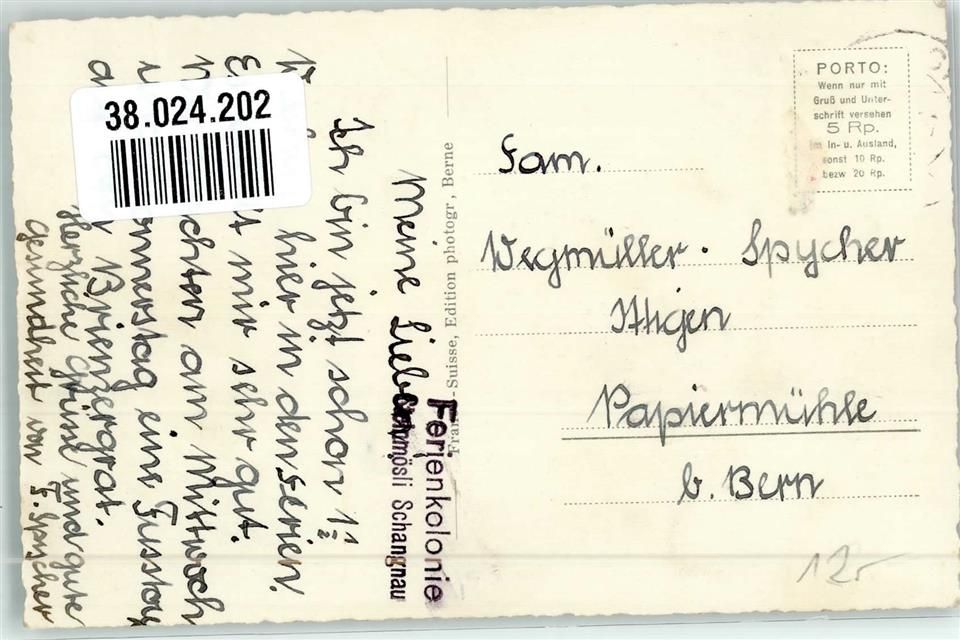 38.024.202
Ferienkolonie
Schangnau
Meine Lieben
Ich bin jetzt schon 1 1/2
hier in den Ferien.
mir sehr gut.
am Mittwoch
eine
Brienzergrat.
Herzliche Grüsse und gute
Gesundheit von F. Spycher
-Suisse, Edition photogr, Berne
PORTO:
Wenn nur mit
Gruß und Unter-
schrift versehen
5 Rp.
im In- u. Ausland,
sonst 10 Rp.
bezw 20 Rp.
Fam.
Wegmüller. Spycher
Ittigen
Papiermühle
b. Bern
12.-